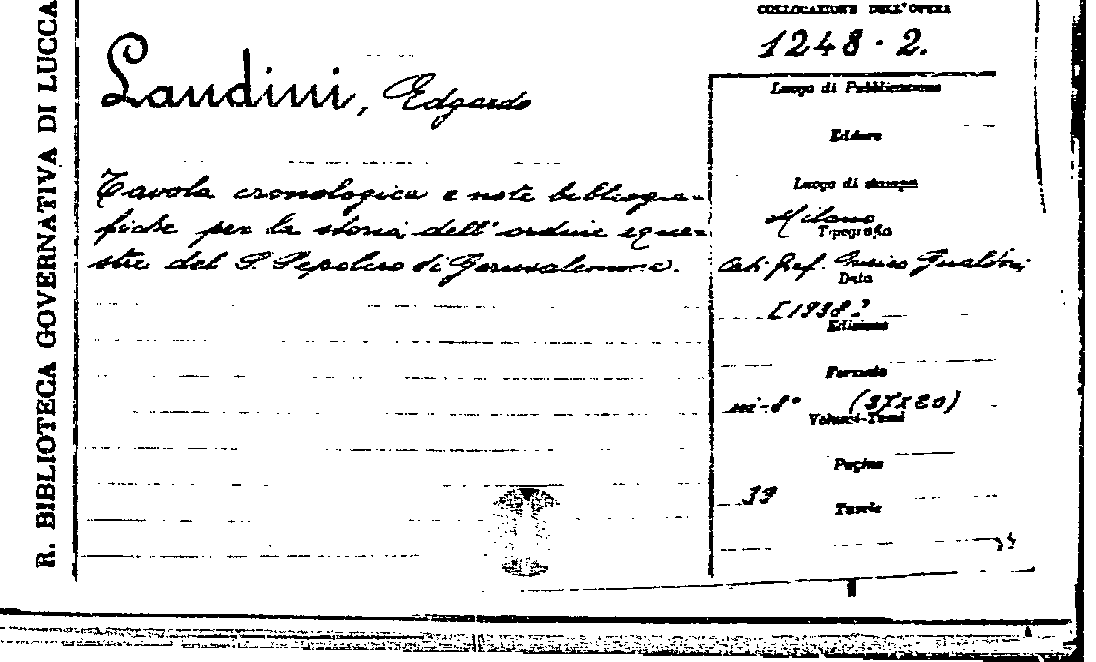 R. BIBLIOTECA GOVERNATIVA DI LUCCA
COLLOCAZIONE DELL'OPERA
1248 - 2.
Landini, Edgardo
Tavola cronologica e note bibliogra-
fiche per la storia dell'ordine eque-
stre del S. Sepolcro di Gerusalemme.
Luogo di Pubblicazione
Editore
Luogo di stampa
Milano
Tipografia
Gualdoni
Data
[1938?
Edizione
Formato
in-8° (37x20)
Volumi-Tomi
Pagine
39
Tavole